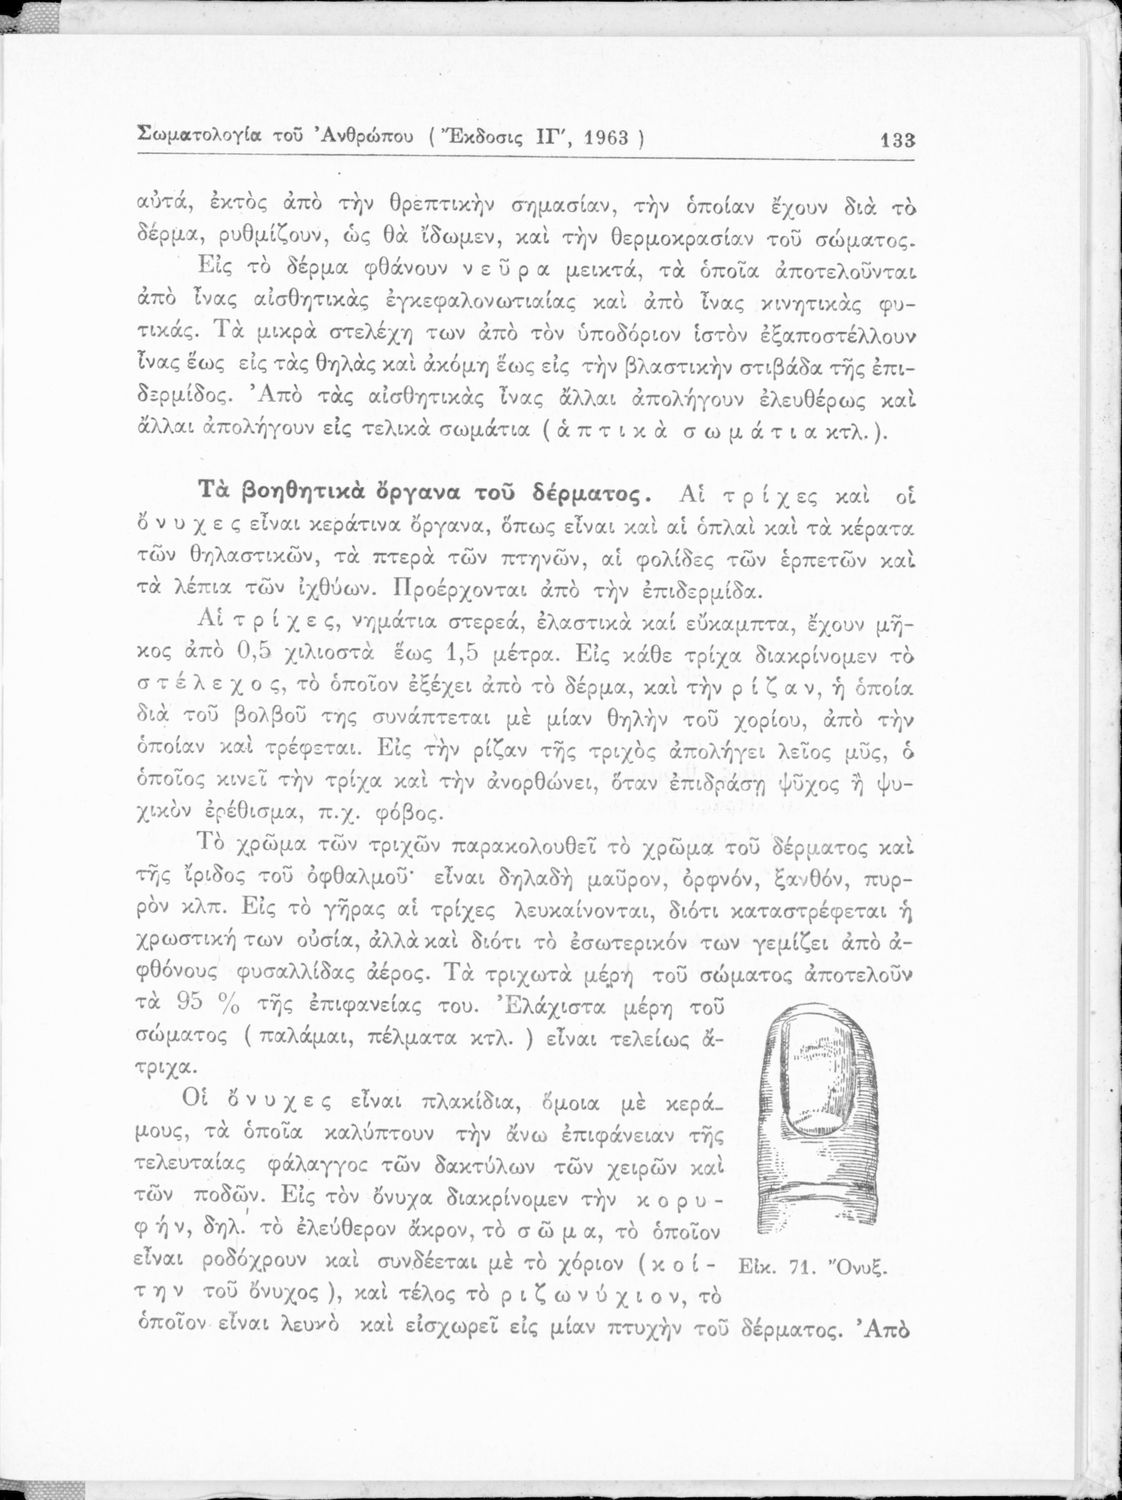 Σωματολογία τοῦ Ἀνθρώπου ( Ἔκδοσις ΙΓ′, 1963 )
133
αὐτά, ἐκτὸς ἀπὸ τὴν θρεπτικὴν σημασίαν, τὴν ὁποίαν ἔχουν διὰ τὸ
δέρμα, ρυθμίζουν, ὡς θὰ ἴδωμεν, καὶ τὴν θερμοκρασίαν τοῦ σώματος.
Εἰς τὸ δέρμα φθάνουν ν ε ῦ ρ α μεικτά, τὰ ὁποῖα ἀποτελοῦνται
ἀπὸ ἶνας αἰσθητικὰς ἐγκεφαλονωτιαίας καὶ ἀπὸ ἶνας κινητικὰς φυ-
τικάς. Τὰ μικρὰ στελέχη των ἀπὸ τὸν ὑποδόριον ἱστὸν ἐξαποστέλλουν
ἶνας ἕως εἰς τὰς θηλὰς καὶ ἀκόμη ἕως εἰς τὴν βλαστικὴν στιβάδα τῆς ἐπι-
δερμίδος. Ἀπὸ τὰς αἰσθητικὰς ἶνας ἄλλαι ἀπολήγουν ἐλευθέρως καὶ
ἄλλαι ἀπολήγουν εἰς τελικὰ σωμάτια ( ἁ π τ ι κ ὰ σ ω μ ά τ ι α κτλ. ).
Τὰ βοηθητικὰ ὄργανα τοῦ δέρματος. Αἱ τ ρ ί χ ες καὶ οἱ
ὄ ν υ χ ε ς εἶναι κεράτινα ὄργανα, ὅπως εἶναι καὶ αἱ ὁπλαὶ καὶ τὰ κέρατα
τῶν θηλαστικῶν, τὰ πτερὰ τῶν πτηνῶν, αἱ φολίδες τῶν ἑρπετῶν καὶ
τὰ λέπια τῶν ἰχθύων. Προέρχονται ἀπὸ τὴν ἐπιδερμίδα.
Αἱ τ ρ ί χ ε ς, νημάτια στερεά, ἐλαστικὰ καί εὔκαμπτα, ἔχουν μῆ-
κος ἀπὸ 0,5 χιλιοστὰ ἕως 1,5 μέτρα. Εἰς κάθε τρίχα διακρίνομεν τὸ
σ τ έ λ ε χ ο ς, τὸ ὁποῖον ἐξέχει ἀπὸ τὸ δέρμα, καὶ τὴν ρ ί ζ α ν, ἡ ὁποία
διὰ τοῦ βολβοῦ της συνάπτεται μὲ μίαν θηλὴν τοῦ χορίου, ἀπὸ τὴν
ὁποίαν καὶ τρέφεται. Εἰς τὴν ρίζαν τῆς τριχὸς ἀπολήγει λεῖος μῦς, ὁ
ὁποῖος κινεῖ τὴν τρίχα καὶ τὴν ἀνορθώνει, ὅταν ἐπιδράσῃ ψῦχος ἢ ψυ-
χικὸν ἐρέθισμα, π.χ. φόβος.
Τὸ χρῶμα τῶν τριχῶν παρακολουθεῖ τὸ χρῶμα τοῦ δέρματος καὶ
τῆς ἴριδος τοῦ ὀφθαλμοῦ· εἶναι δηλαδὴ μαῦρον, ὀρφνόν, ξανθόν, πυρ-
ρὸν κλπ. Εἰς τὸ γῆρας αἱ τρίχες λευκαίνονται, διότι καταστρέφεται ἡ
χρωστική των οὐσία, ἀλλὰ καὶ διότι τὸ ἐσωτερικόν των γεμίζει ἀπὸ ἀ-
φθόνους φυσαλλίδας ἀέρος. Τὰ τριχωτὰ μέρη τοῦ σώματος ἀποτελοῦν
τὰ 95 % τῆς ἐπιφανείας του. Ἐλάχιστα μέρη τοῦ
σώματος ( παλάμαι, πέλματα κτλ. ) εἶναι τελείως ἄ-
τριχα.
Οἱ ὄ ν υ χ ε ς εἶναι πλακίδια, ὅμοια μὲ κερά-
μους, τὰ ὁποῖα καλύπτουν τὴν ἄνω ἐπιφάνειαν τῆς
τελευταίας φάλαγγος τῶν δακτύλων τῶν χειρῶν καὶ
τῶν ποδῶν. Εἰς τὸν ὄνυχα διακρίνομεν τὴν κ ο ρ υ -
φ ή ν, δηλ. τὸ ἐλεύθερον ἄκρον, τὸ σ ῶ μ α, τὸ ὁποῖον
εἶναι ροδόχρουν καὶ συνδέεται μὲ τὸ χόριον ( κ ο ί -
τ η ν τοῦ ὄνυχος ), καὶ τέλος τὸ ρ ι ζ ω ν ύ χ ι ο ν, τὸ
ὁποῖον εἶναι λευκὸ καὶ εἰσχωρεῖ εἰς μίαν πτυχὴν τοῦ δέρματος. Ἀπὸ
Εἰκ. 71. Ὄνυξ.